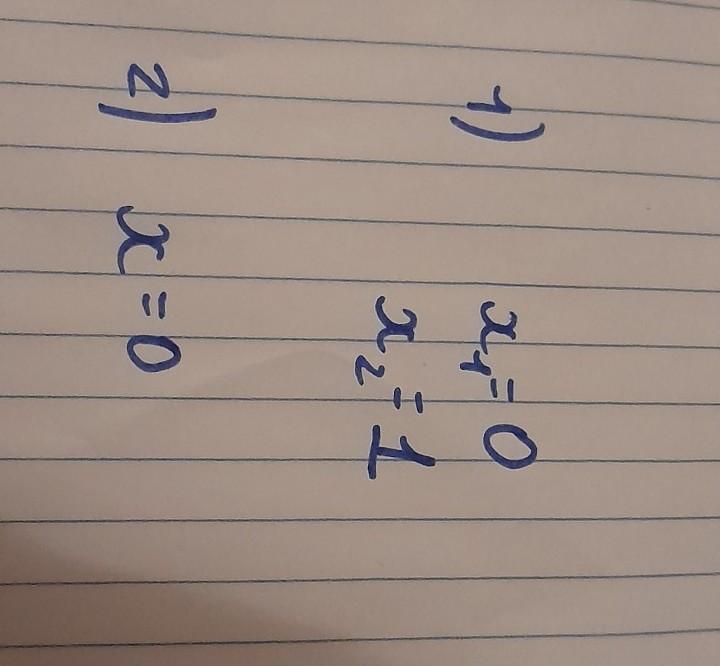 1)
x₁ = 0
x₂ = 1
2) x = 0